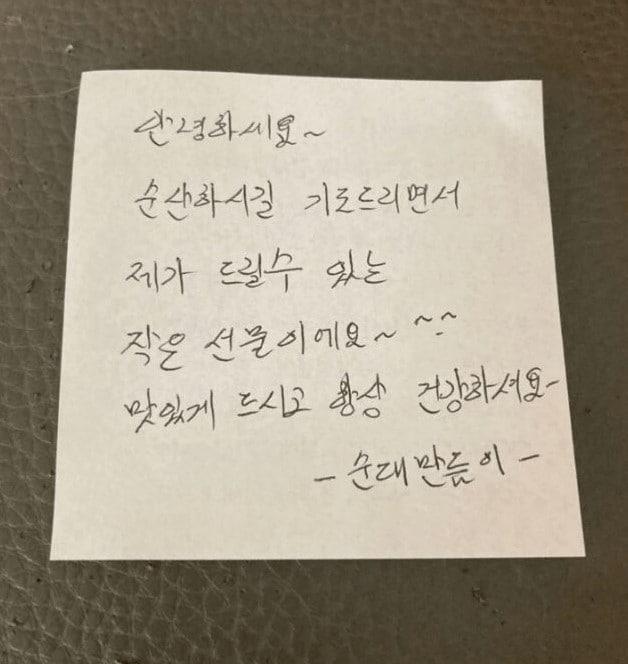 안녕하씨요~
순산하시길 기도드리면서
제가 드릴수 있는
작은 선물이에요~ ~.~
맛있게 드시고 항상 건강하셔요~
- 순대만듦이 -